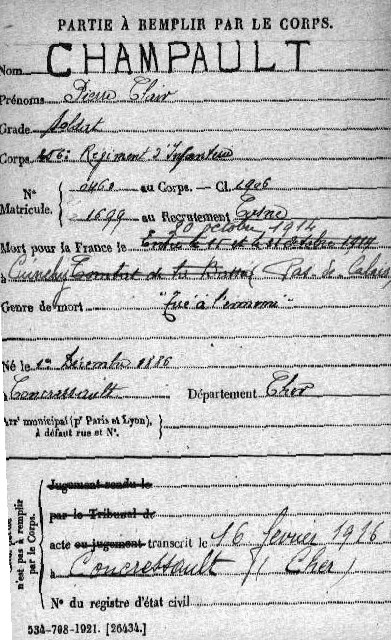 PARTIE À REMPLIR PAR LE CORPS.
Nom CHAMPAULT
Prénoms Pierre Clair
Grade soldat
Corps 256e Régiment d'Infanterie
N° Matricule. 0460 au Corps. — Cl. 1906
1699 au Recrutement
30 octobre 1914
Mort pour la France le Entre le 15 et le 21 octobre 1914
à Cuinchy Combat de La Bassée Pas de Calais
Genre de mort "Tué à l'ennemi"
Né le 1er Décembre 1886
Concressault Département Cher
Arr' municipal (p' Paris et Lyon),
à défaut rue et N°.
n'est pas à remplir
par le Corps.
Jugement rendu le
par le Tribunal de
acte ou jugement transcrit le 16 février 1916
à Concressault (Cher)
N° du registre d'état civil
534-708-1921. [26434.]